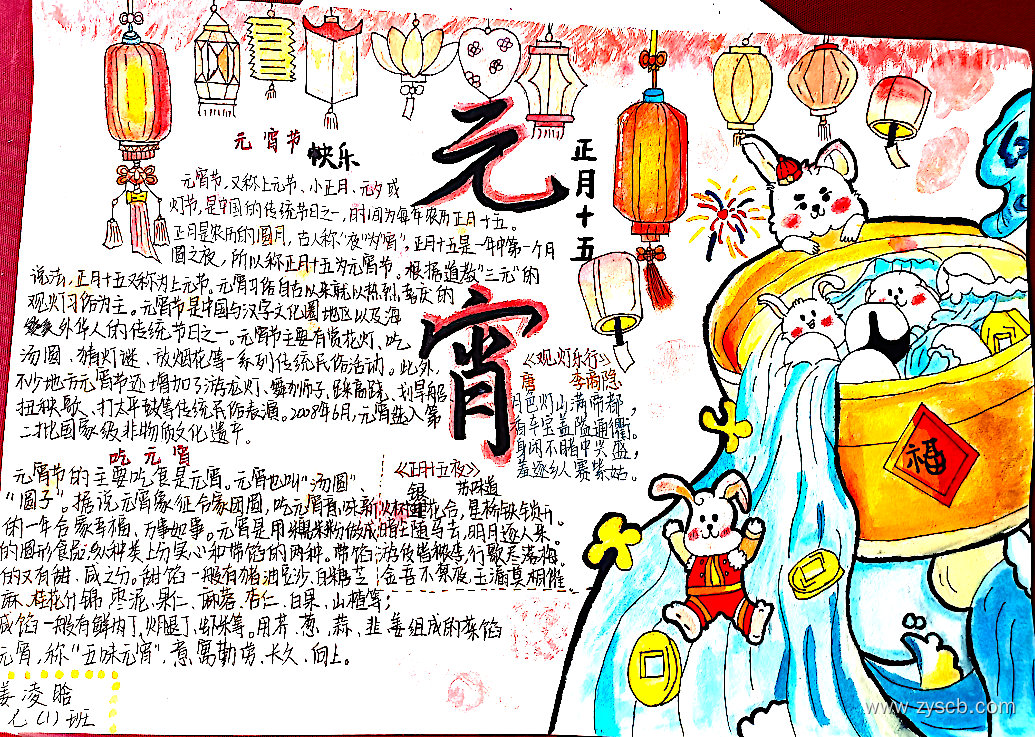 元宵节 快乐
元宵
正月十五
元宵节,又称上元节、小正月、元夕或
灯节,是中国的传统节日之一,时间为每年农历正月十五。
正月是农历的圆月,古人称"夜"为"宵"。正月十五是一年中第一个月
圆之夜,所以称正月十五为元宵节。根据道教"三元"的
说法,正月十五又称为上元节。元宵习俗自古以来就以热烈喜庆的
观灯习俗为主。元宵节是中国与汉字文化圈地区以及海
外华人的传统节日之一。元宵节主要有赏花灯、吃
汤圆、猜灯谜、放烟花等一系列传统民俗活动。此外,
不少地方元宵节还增加了游龙灯、舞狮子、踩高跷、划旱船
扭秧歌、打太平鼓等传统民俗表演。2008年6月,元宵选入第
二批国家级非物质文化遗产。
《观灯乐行》
唐 李商隐
月色灯山满帝都,
香车宝盖隘通衢。
身闲不睹中兴盛,
羞逐乡人赛紫姑。
吃元宵
元宵节的主要吃食是元宵。元宵也叫"汤圆"、
"圆子"。据说元宵象征合家团圆,吃元宵意味新
的一年合家幸福、万事如事。元宵是用糯米粉做成
的圆形食品,从种类上分实心和带馅的两种。带馅
的又有甜、咸之分。甜馅一般有猪油豆沙、白糖芝
麻、桂花什锦、枣泥、果仁、麻蓉、杏仁、白果、山楂等;
咸馅一般有鲜肉丁、火腿丁、虾米等。用芥、葱、蒜、韭、姜组成的菜馅
元宵,称"五味元宵",意寓勤劳、长久、向上。
《正月十五夜》
苏味道
火树银花合,星桥铁锁开。
暗尘随马去,明月逐人来。
游伎皆秾李,行歌尽落梅。
金吾不禁夜,玉漏莫相催。
姜凌晗
七(1)班
福
www.zyscb.com